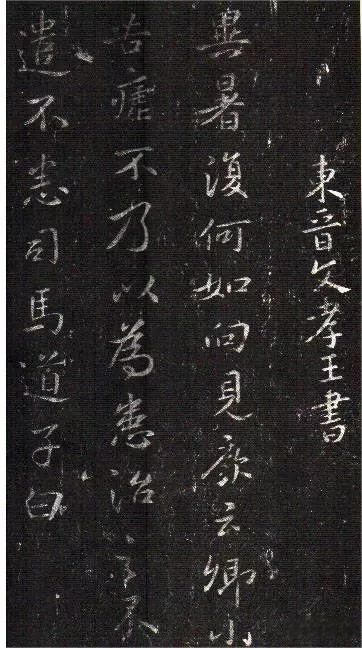 東晉文孝王書
異暑復何如向見家云卿小
苦瘧不乃以為患治不
遣不悉司馬道子白